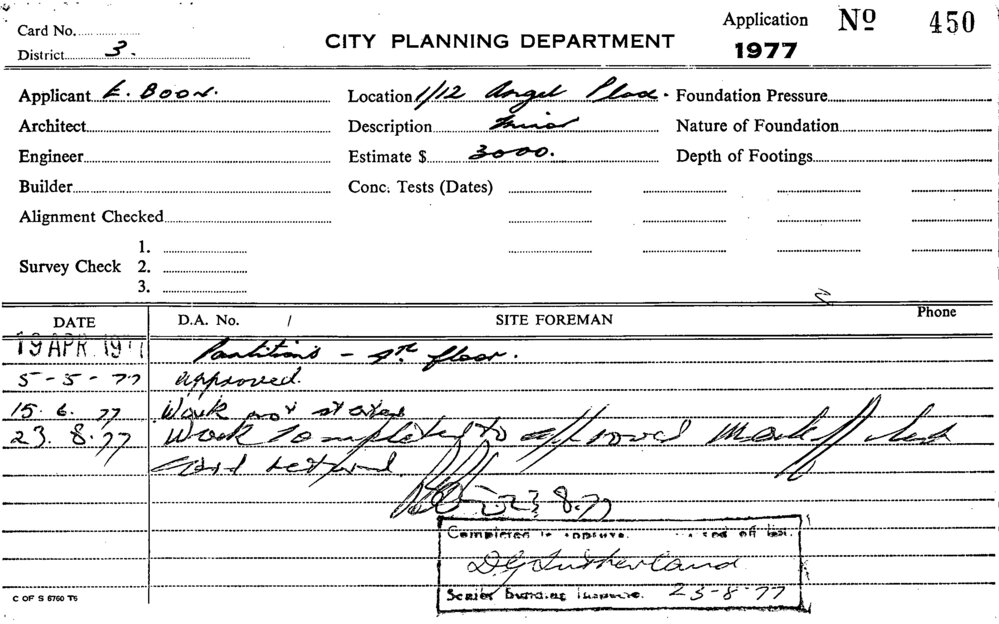 Card No.
District 3.
CITY PLANNING DEPARTMENT
Application Nº 450
1977
Applicant E. BOON. Location 1/12 Angel Place. Foundation Pressure
Architect Description Minor Nature of Foundation
Engineer Estimate $ 3000. Depth of Footings
Builder Conc. Tests (Dates)
Alignment Checked
1.
Survey Check 2.
3.
DATE D.A. No. / SITE FOREMAN Phone
19 APR 1977 Partitions - 4th floor.
5-5-77 approved.
15.6.77 Work not started
23.8.77 Work completed to approved mark off last
card returned
23.8.77
Completed to approve. off list.
D G Sutherland
Senior Building Inspector. 23-8-77
C OF S 6760 T5